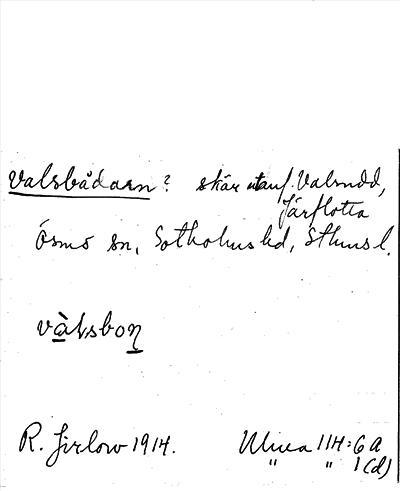 Valsbådarn? skär utanf. Valsudd,
Järflotta
Ösmo sn, Sotholms hd, Sthms l.
vàlsbon
R. Jirlow 1914.
114:6 A
" " 1(d)